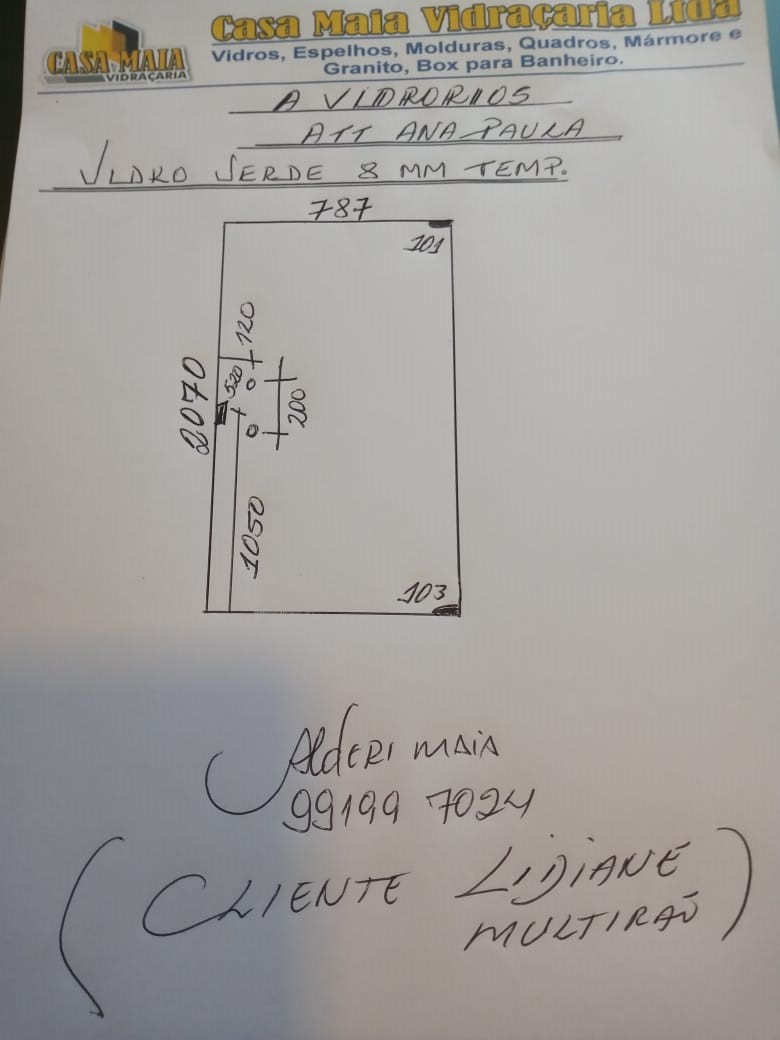 CASA MAIA
VIDRAÇARIA
Casa Maia Vidraçaria Ltda
Vidros, Espelhos, Molduras, Quadros, Mármore e
Granito, Box para Banheiro.
A VIDRORIOS
ATT ANA PAULA
VIDRO VERDE 8 MM TEMP.
787
101
120
2070
520
200
1050
103
Alderi MAIA
99199 7024
(CLIENTE LIDIANE
MULTIRÃO)